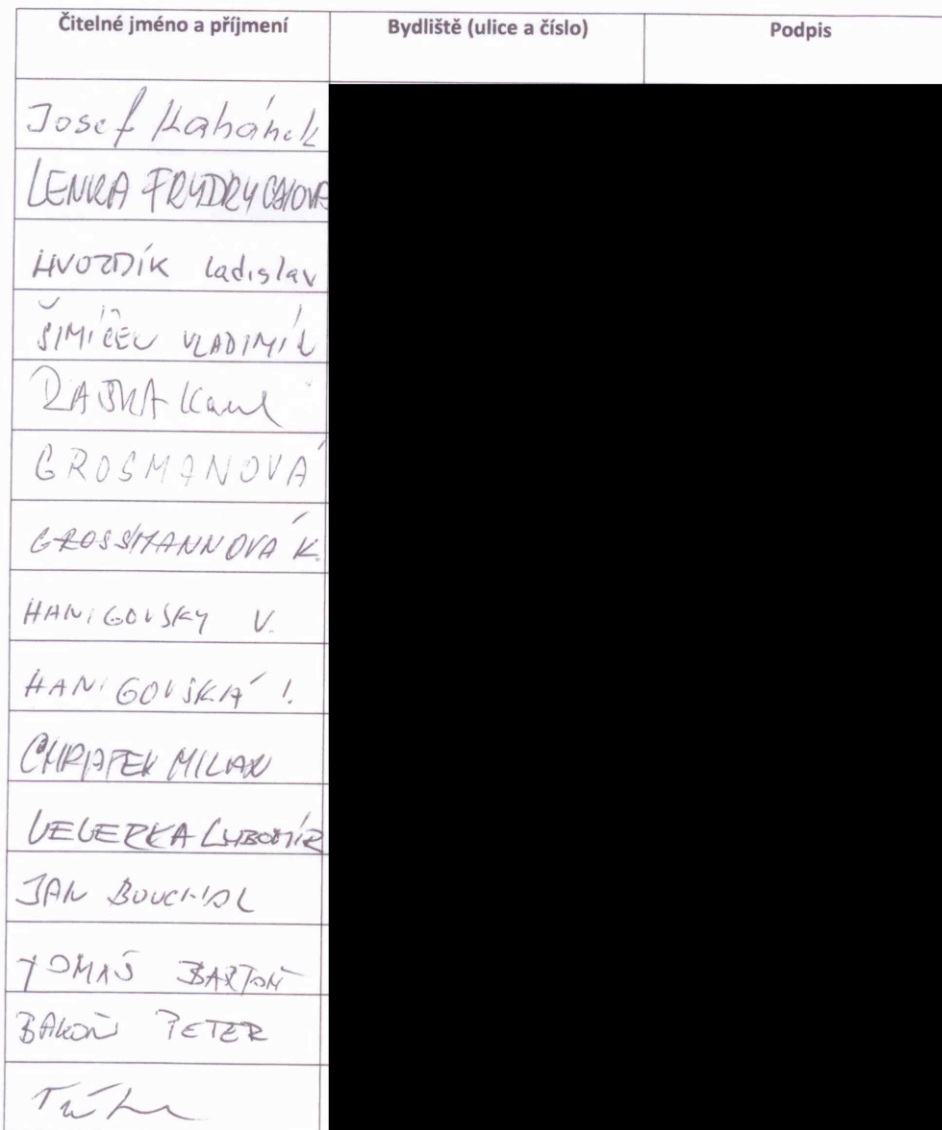 Čitelné jméno a příjmení
Bydliště (ulice a číslo)
Podpis
Josef
LENKA FRYDRYCHOVÁ
HVOZDÍK Ladislav
ŠIMÍČEK VLADIMÍR
GROSMANOVÁ
GROSSMANNOVÁ K.
HANIGOVSKY V.
HANIGOVSKÁ
MILAN
VEČERKA LUBOMÍR
JAN BOUCHAL
TOMÁŠ BARTOŇ
BAKOŠ PETER